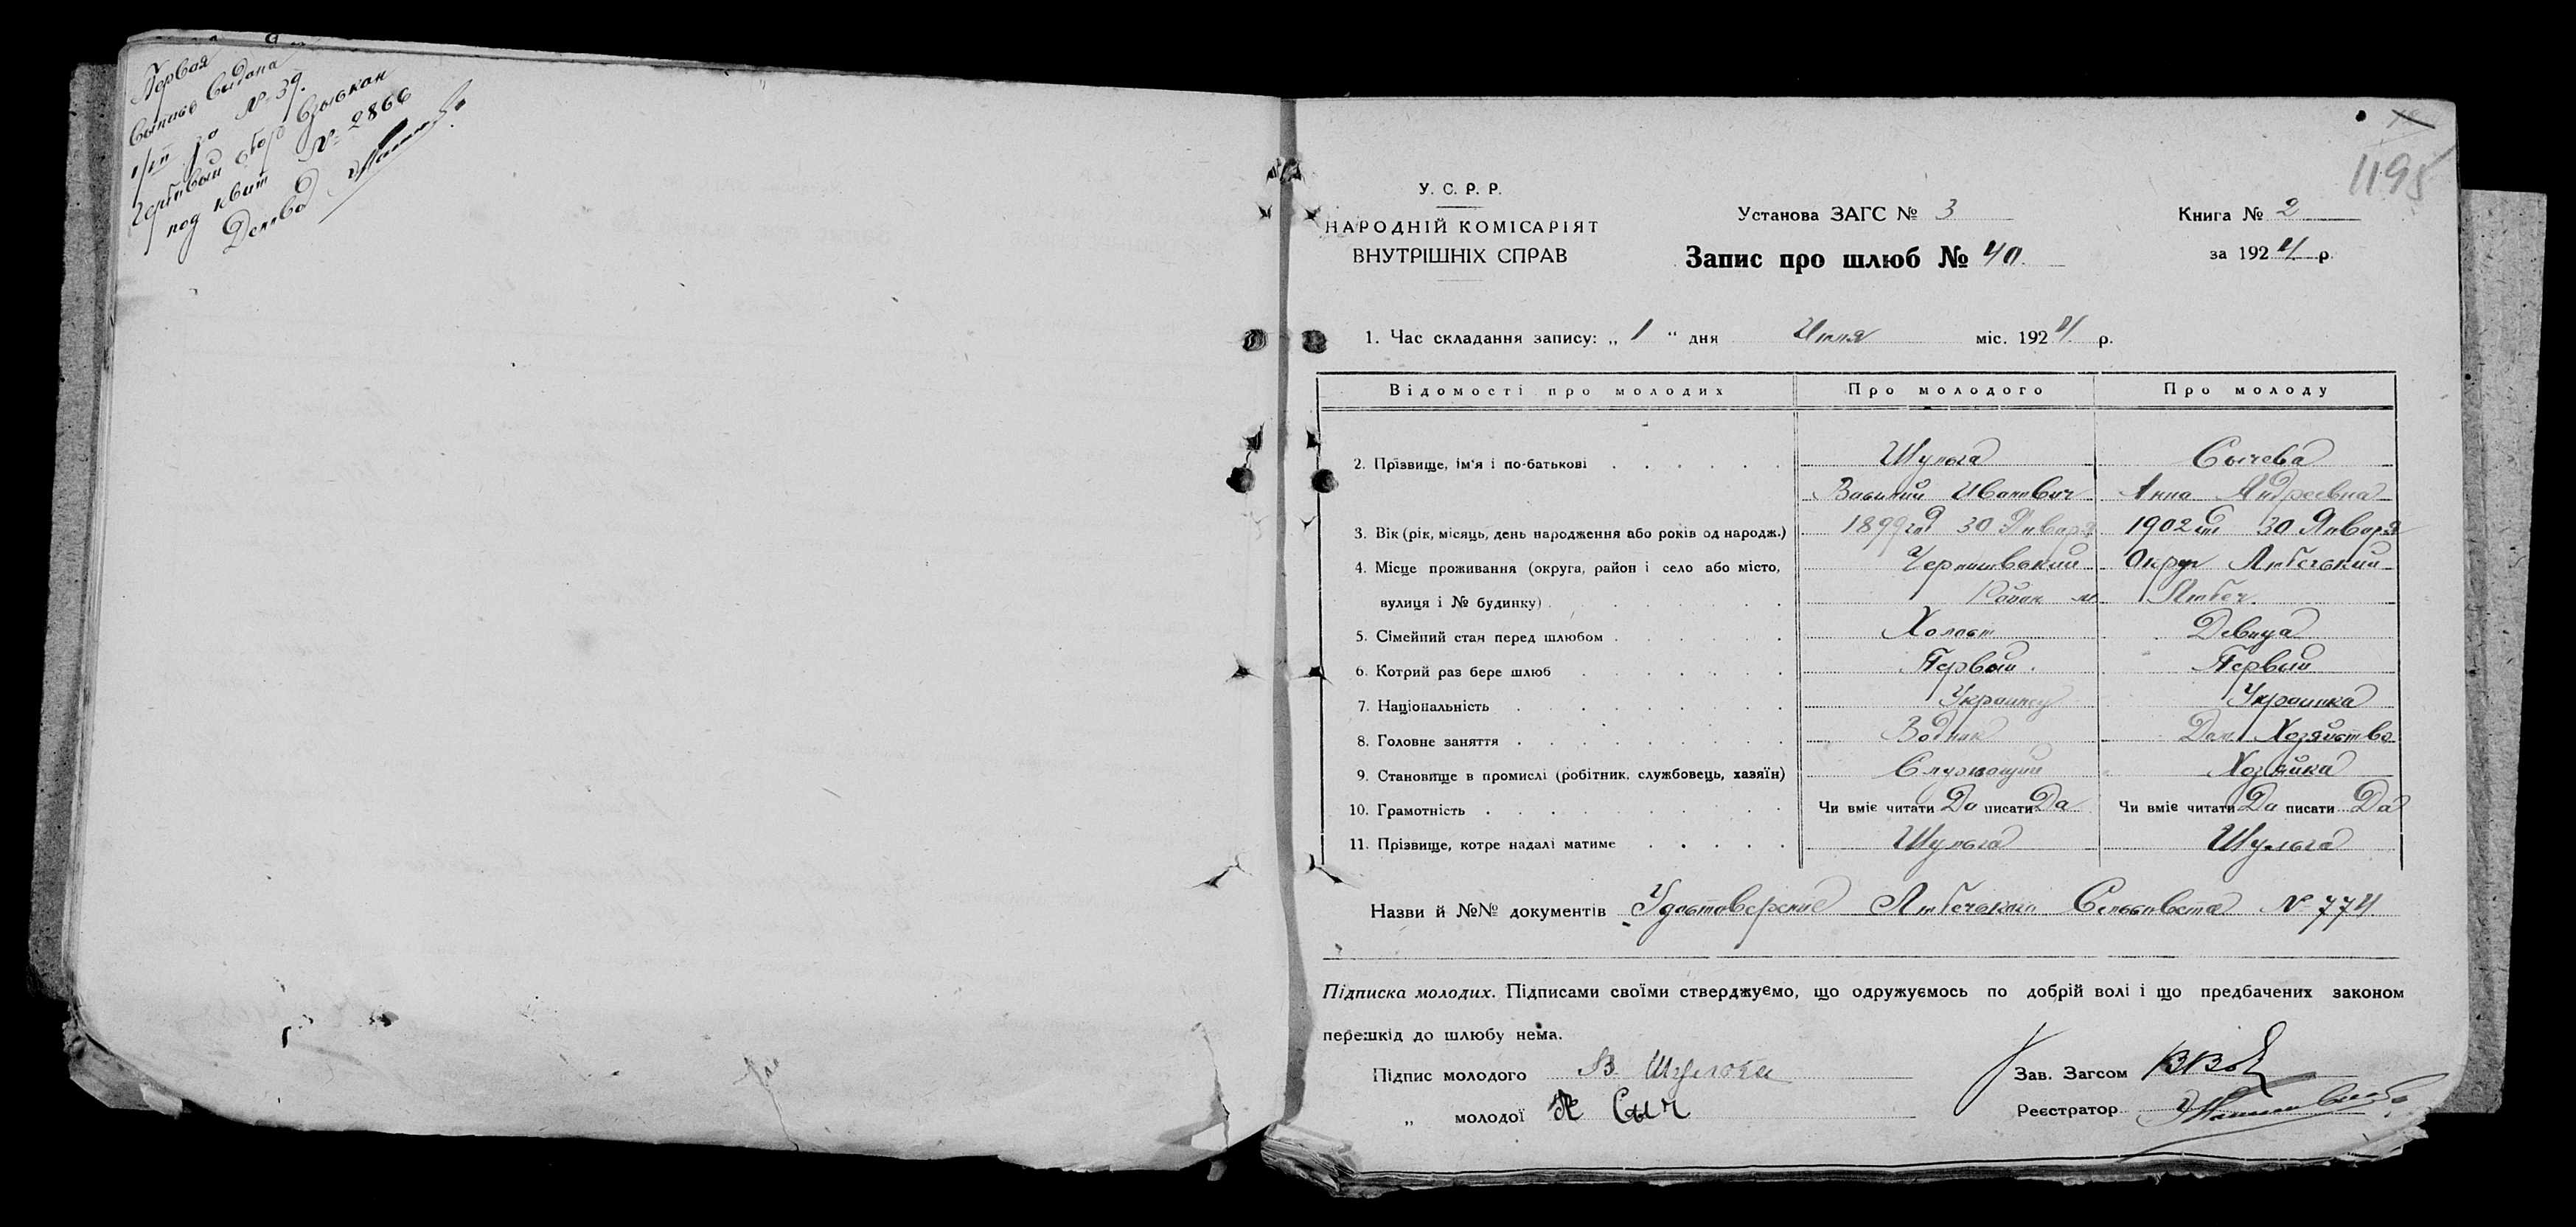 Первая
выпись выдана
за № 39.
Гербовый сбор взыскан
под квит № 2866
1195
У. С. Р. Р.
НАРОДНІЙ КОМІСАРІЯТ
ВНУТРІШНІХ СПРАВ
Установа ЗАГС № 3
Запис про шлюб № 40.
Книга № 2
за 1924 р.
1. Час складання запису: „ 1 “ дня Июля міс. 1924 р.
Відомості про молодих Про молодого Про молоду
2. Прізвище, ім‘я і по-батькові Шульга Сычева
Василий Иванович Анна Андреевна
3. Вік (рік, місяць, день народження або років од народж.) 1899 год 30 Января 1902 30 Января
4. Місце проживання (округа, район і село або місто, Черниговський Округ Любечький
вулиця і № будинку) Район м Любеч.
5. Сімейний стан перед шлюбом Холост Девица
6. Котрий раз бере шлюб Первый Первый
7. Національність Украинец Украинка
8. Головне заняття Водник Дом Хозяйство
9. Становище в промислі (робітник, службовець, хазяїн) Служющий Хозяйка
10. Грамотність Чи вміє читати Да писати Да Чи вміє читати Да писати Да
11. Прізвище, котре надалі матиме Шульга Шульга
Назви й №№ документів Удостоверение Любечького Сельсовета № 774
Підписка молодих. Підписами своїми стверджуємо, що одружуємось по добрій волі і що предбачених законом
перешкід до шлюбу нема.
Підпис молодого В. Шульга
„ молодої А Сыч
Зав. Загсом
Реєстратор